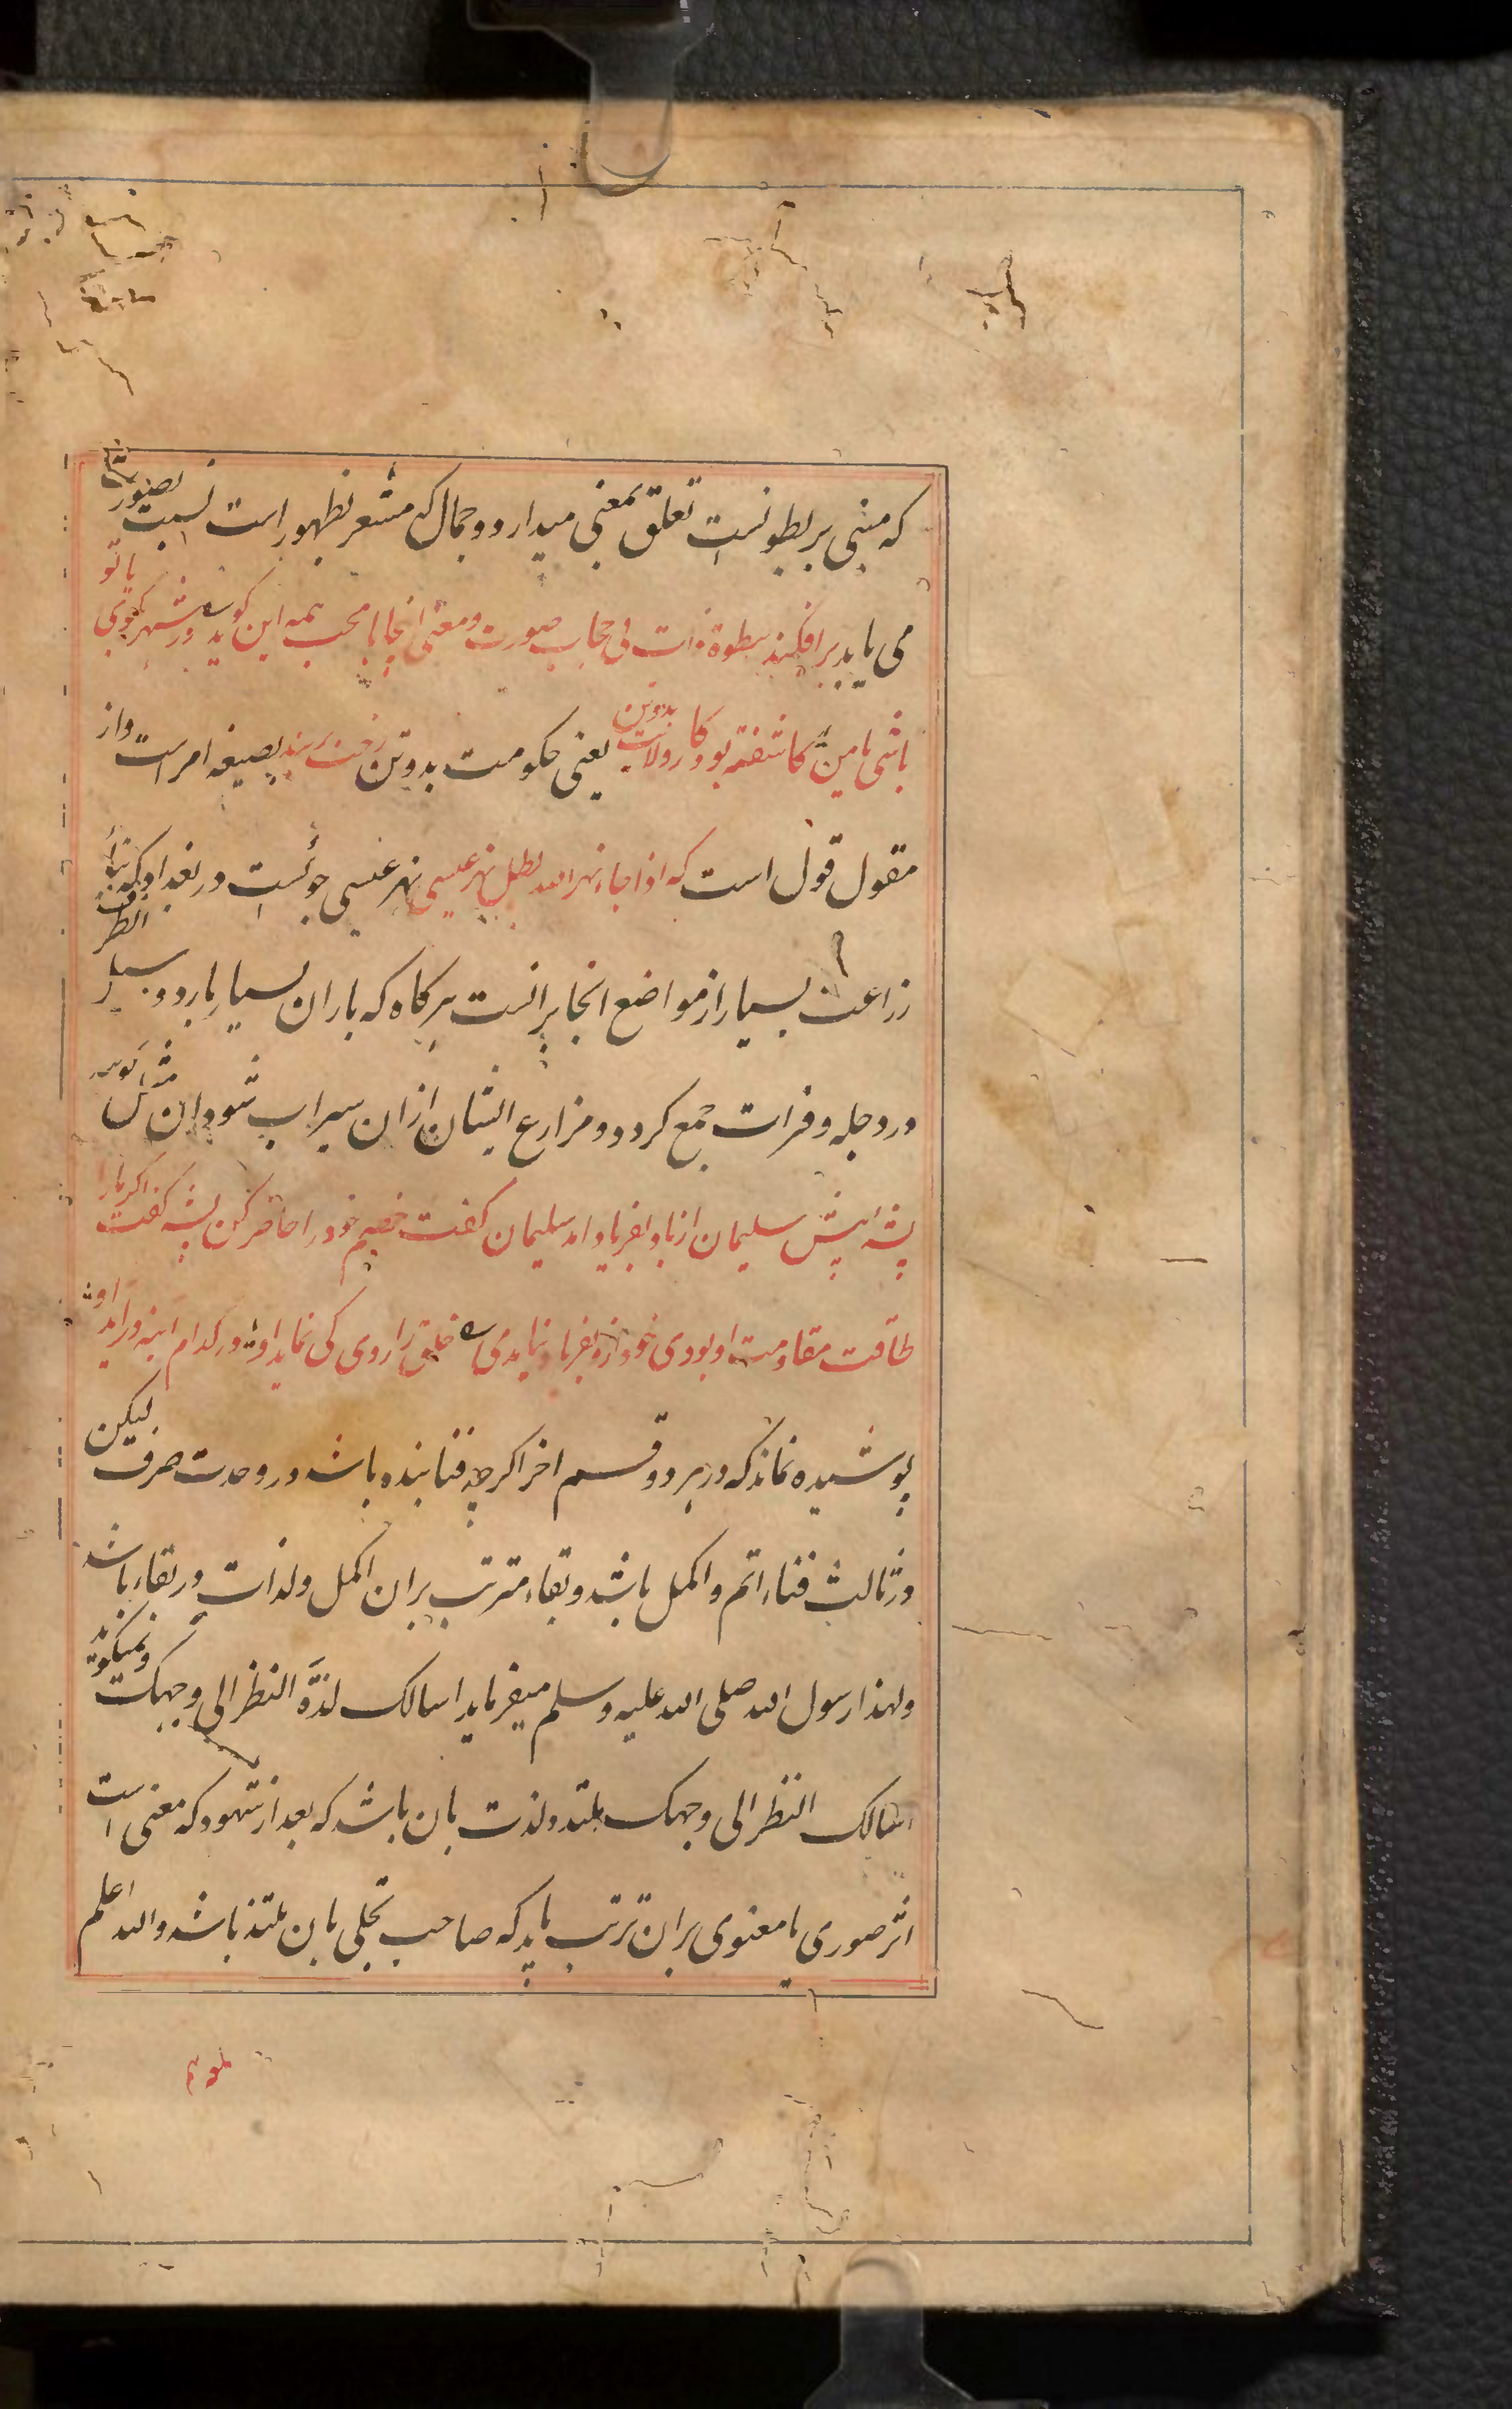 که مبنی بر بطونست تعلق بمعنی میدارد و جمال که مشعر بظهور است نسبت بصورت
می یابد برافکند سطوة ذات بی حجاب صورت و معنی اینجا با محب همه این گوید ه در شهر بگوی یا تو
باشی یا من کاشفته بود کار ولایت بدوتن یعنی حکومت بدوتن رخت بربند بصیغه امر است و از
مقول قول است که اذا جاء نهر الله بطل نهر عیسی نهر عیسی جوئیست در بغداد که بناء
زراعت بسیار از مواضع انجا بر انست هرکاه که باران بسیار بارد و سیل
در دجله و فرات جمع کردد و مزارع ایشان ازان سیراب شود ان
پشه پیش سلیمان از باد بفریاد امد سلیمان کفت خصم خود را حاضر کن پشه کفت اکر مرا
طاقت مقاومت او بودی خود ازو بفریاد نیامدمی ه خلق را روی کی نماید او در کدام اینه دراید او
پوشیده نماند که در هر دو قسم اخر اکرچه فنا بنده باشد در وحدت صرف لیکن
در ثالث فناء اتم و اکمل باشد و بقاء مترتب بران اکمل ولذات در بقاء باشد
ولهذا رسول الله صلی الله علیه وسلم میفرماید اسالک لذة النظر الی وجهک و نمیکوید
اسالک النظر الی وجهک ملتذ ولذت بان باشد که بعد از شهود که معنی است
اثر صوری یا معنوی بران ترتب یابد که صاحب تجلی بان ملتذ باشد والله اعلم